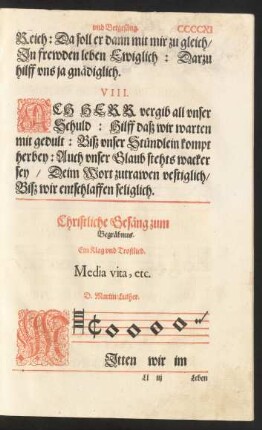 vnd Vergeſäng. CCCCXI
Reich: Da ſoll er dann mit mir zu gleich/
In frewden leben Ewiglich : Darzu
hilff vns ja gnädiglich.
VIII.
ACH HERR vergib all vnſer
Schuld : Hilff daß wir warten
mit gedult : Biß vnſer Stündlein kompt
herbey : Auch vnſer Glaub ſtehts wacker
ſey / Deim Wort zutrawen veſtiglich/
Biß wir entſchlaffen ſeliglich.
Chriſtliche Geſäng zum
Begräbnus.
Ein Klag vnd Troſtlied.
Media vita, etc.
D. Martin: Luther.
MItten wir im
Ll iij Leben